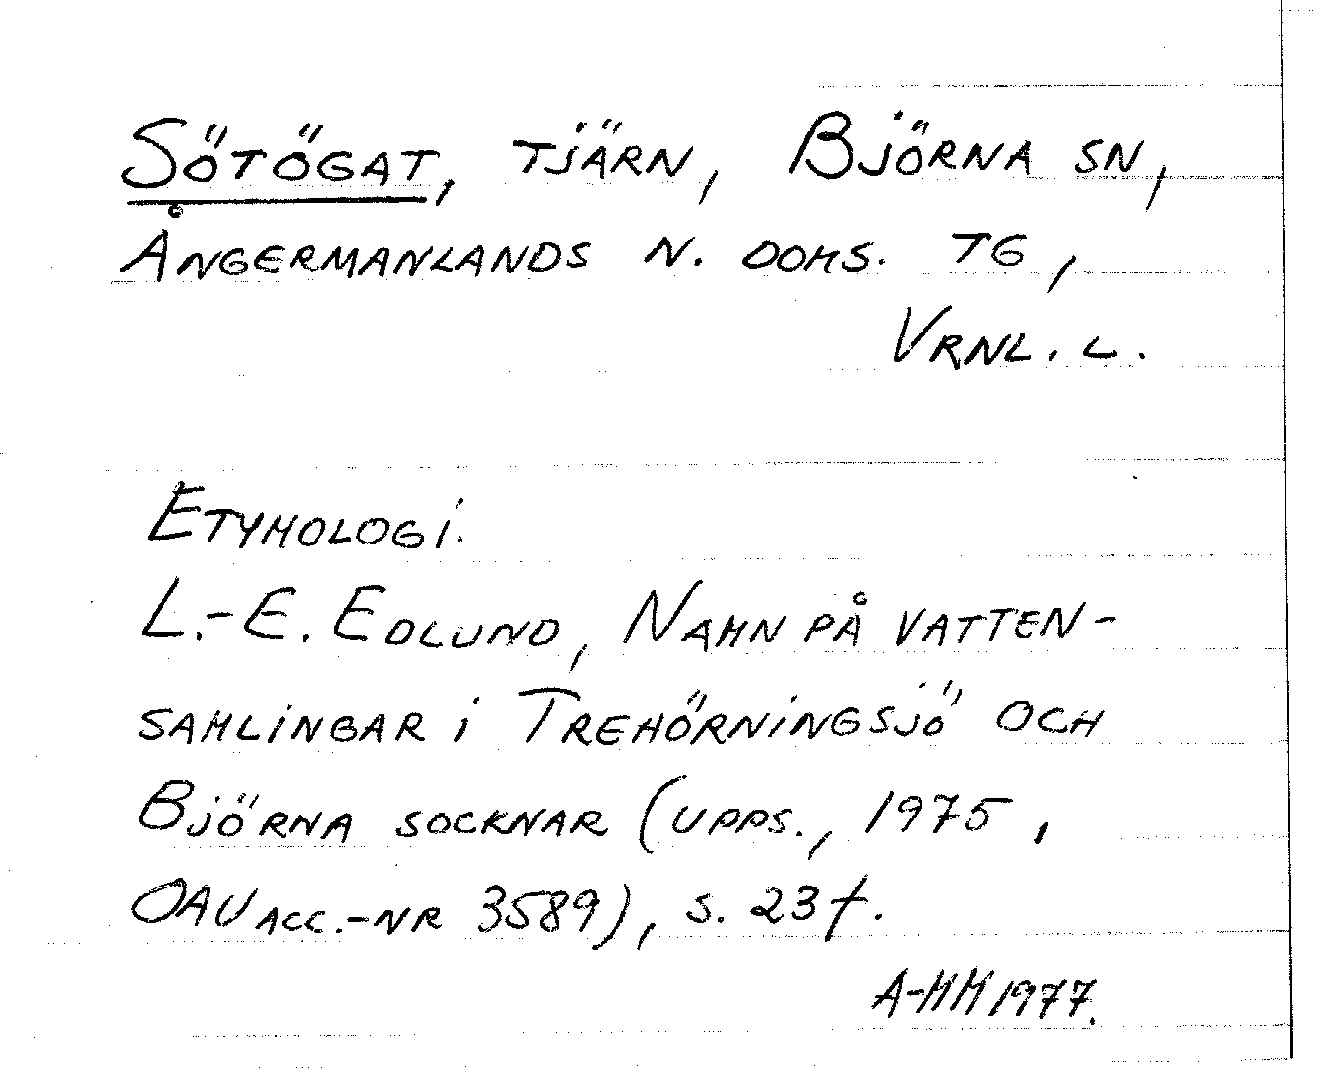 SÖTÖGAT, TJÄRN, BJÖRNA SN,
ÅNGERMANLANDS N. DOMS. TG,
VRNL. L.
ETYMOLOGI.
L.-E. EDLUND, NAMN PÅ VATTEN-
SAMLINGAR I TREHÖRNINGSJÖ OCH
BJÖRNA SOCKNAR (UPPS., 1975,
OAU ACC.-NR 3589), S. 23 f.
A-MM 1977.